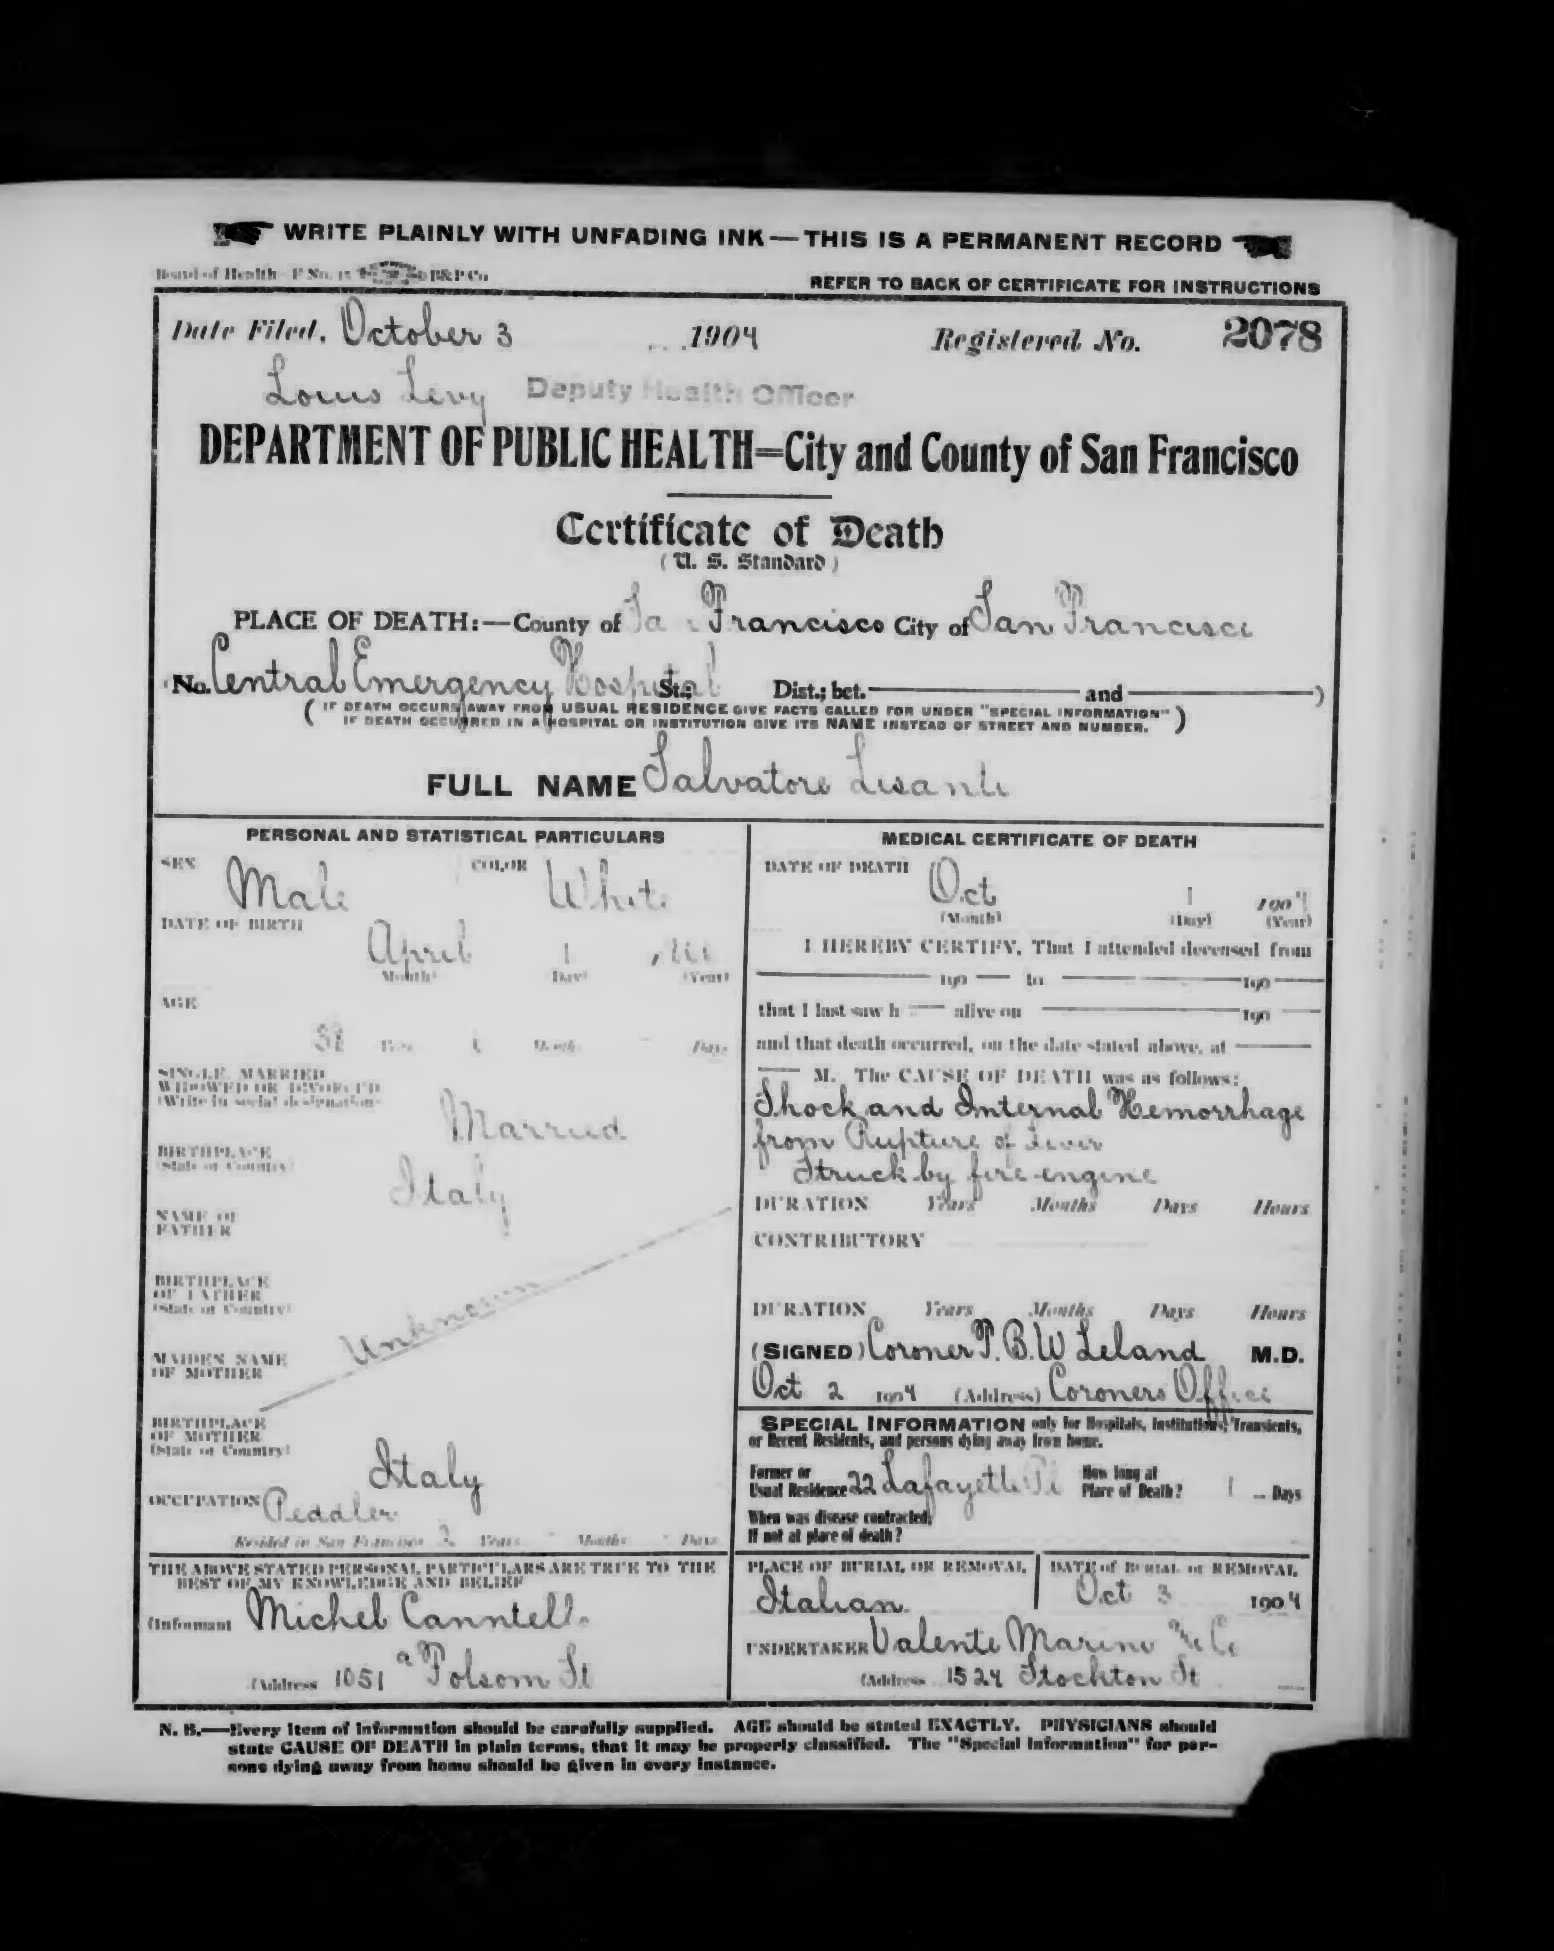 WRITE PLAINLY WITH UNFADING INK—THIS IS A PERMANENT RECORD
Board of Health—F No. 15 B&P Co
REFER TO BACK OF CERTIFICATE FOR INSTRUCTIONS
Date Filed, October 3 1904 Registered No. 2078
Louis Levy Deputy Health Officer
DEPARTMENT OF PUBLIC HEALTH=City and County of San Francisco
Certificate of Death
(U. S. Standard)
PLACE OF DEATH:—County of San Francisco City of San Francisco
No. Central Emergency Hospital St.; Dist.; bet. and )
( IF DEATH OCCURS AWAY FROM USUAL RESIDENCE GIVE FACTS CALLED FOR UNDER "SPECIAL INFORMATION" )
IF DEATH OCCURRED IN A HOSPITAL OR INSTITUTION GIVE ITS NAME INSTEAD OF STREET AND NUMBER.
FULL NAME Salvatore Lisanti
PERSONAL AND STATISTICAL PARTICULARS
SEX Male COLOR White
DATE OF BIRTH
April 1
(Month) (Day) (Year)
AGE
38 Years Months Days
SINGLE, MARRIED
WIDOWED OR DIVORCED
(Write in social designation)
Married
BIRTHPLACE
(State or Country)
Italy
NAME OF
FATHER
BIRTHPLACE
OF FATHER
(State or Country)
Unknown
MAIDEN NAME
OF MOTHER
BIRTHPLACE
OF MOTHER
(State or Country)
Italy
OCCUPATION Peddler
Resided in San Francisco Years Months Days
THE ABOVE STATED PERSONAL PARTICULARS ARE TRUE TO THE
BEST OF MY KNOWLEDGE AND BELIEF
(Informant Michel Canntello
(Address 1051 a Folsom St
MEDICAL CERTIFICATE OF DEATH
DATE OF DEATH
Oct 1 1904
(Month) (Day) (Year)
I HEREBY CERTIFY, That I attended deceased from
190 to 190
that I last saw h alive on 190
and that death occurred, on the date stated above, at
M. The CAUSE OF DEATH was as follows:
Shock and Internal Hemorrhage
from Rupture of Liver
Struck by fire engine
DURATION Years Months Days Hours
CONTRIBUTORY
DURATION Years Months Days Hours
(SIGNED) Coroner T. B. W Leland M.D.
Oct 2 1904 (Address) Coroners Office
SPECIAL INFORMATION only for Hospitals, Institutions, Transients,
or Recent Residents, and persons dying away from home.
Former or
Usual Residence 22 Lafayette Pl
How long at
Place of Death? 1 Days
When was disease contracted,
If not at place of death?
PLACE OF BURIAL OR REMOVAL
Italian
DATE of BURIAL or REMOVAL
Oct 3 1904
UNDERTAKER Valente Marini and Co
(Address 1524 Stockton St
N. B.—Every item of information should be carefully supplied. AGE should be stated EXACTLY. PHYSICIANS should
state CAUSE OF DEATH in plain terms, that it may be properly classified. The "Special Information" for per-
sons dying away from home should be given in every instance.